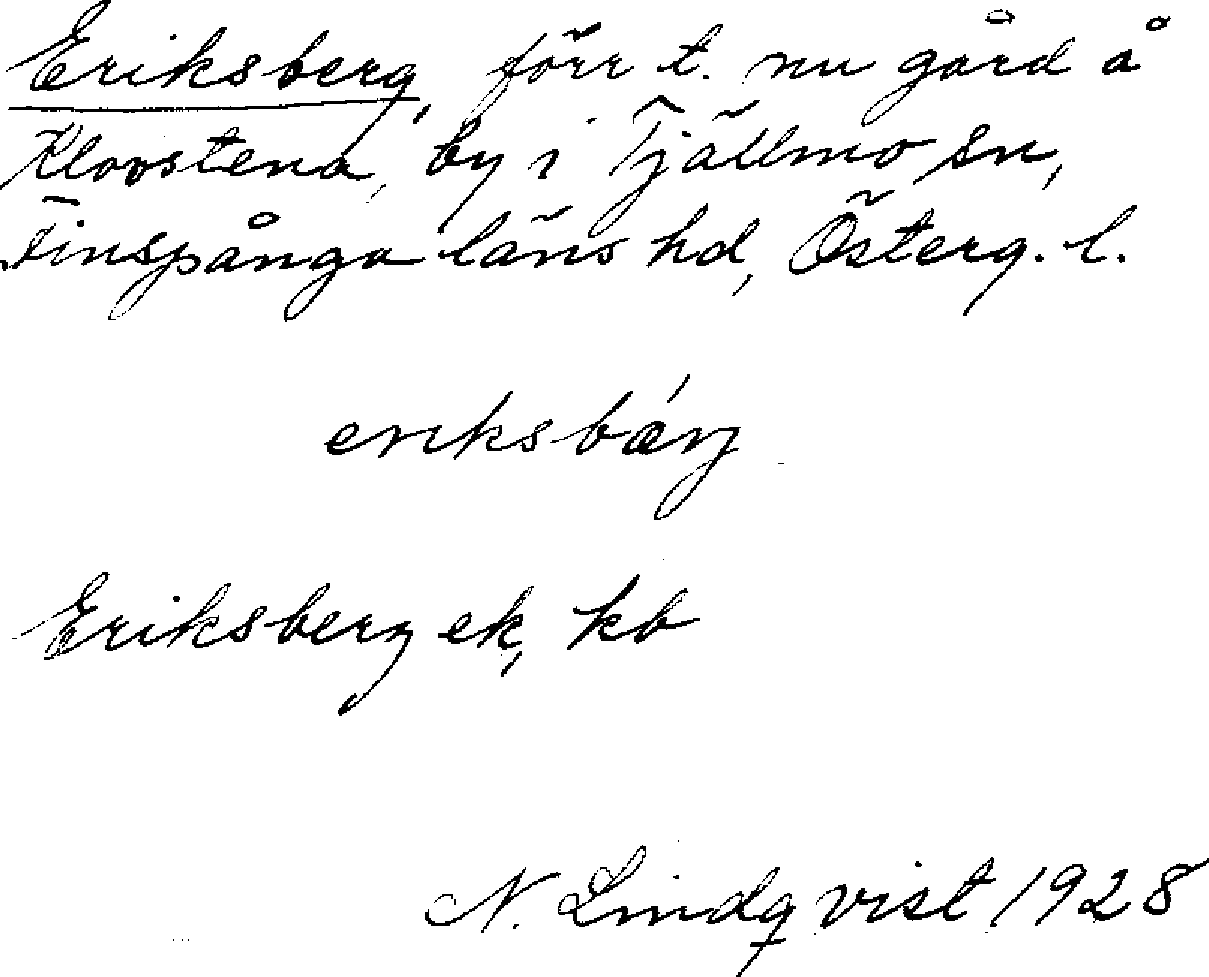 Eriksberg, förr t. nu gård å
Klovstena, by i Tjällmo sn,
Finspånga läns hd, Österg. l.
eriksbárj
Eriksberg ek, kb
N. Lindqvist 1928